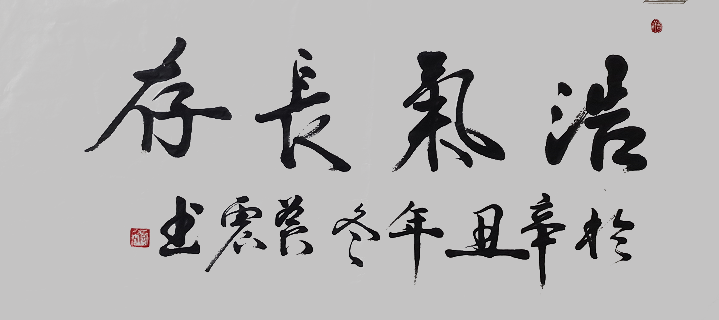 浩氣長存
於辛丑年冬黃震書